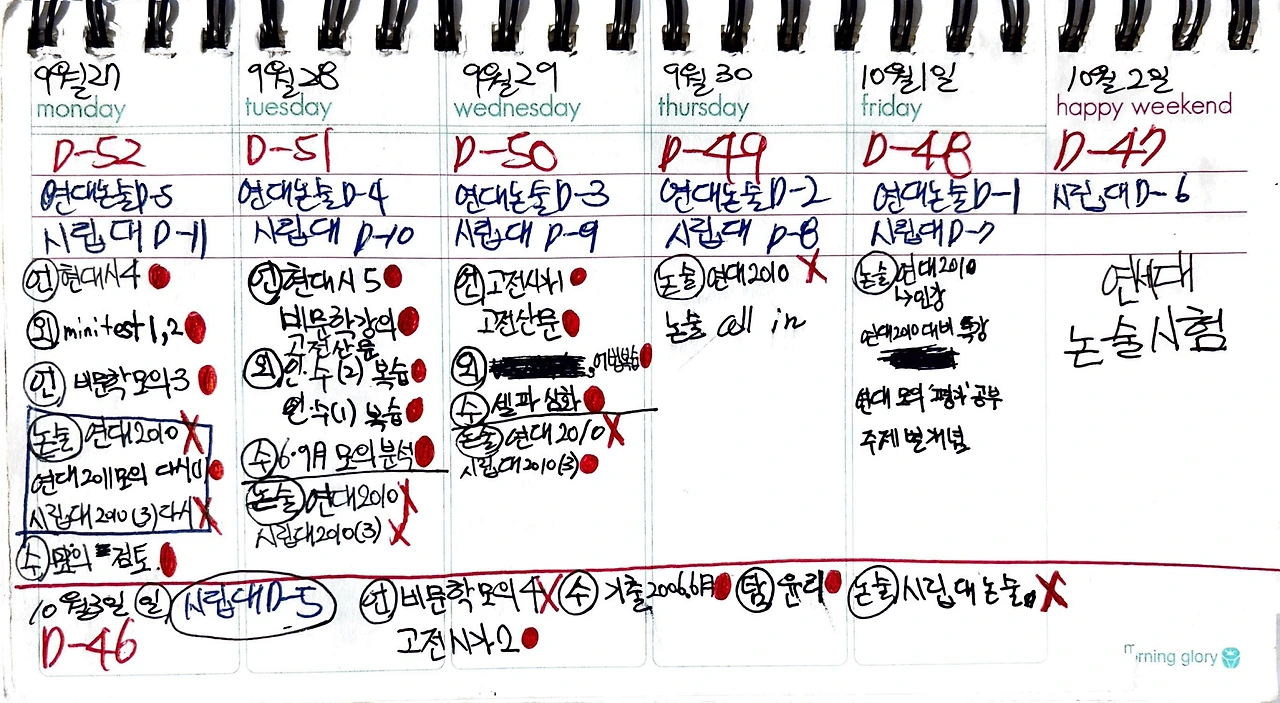 9월27
monday
D-52
연대논술D-5
시립대 D-11
언 현대시4
외 minitest1,2
언 비문학모의3
논술 연대2010 X
연대2011모의 다시
시립대2010(3)다시 X
수 모의 검토.
9월28
tuesday
D-51
연대논술D-4
시립대 D-10
언 현대시 5
비문학강의
고전산문
외 인·수(2) 복습
인·수(1) 복습
수 6·9月 모의분석
논술 연대2010 X
시립대2010(3) X
9월29
wednesday
D-50
연대논술D-3
시립대 D-9
언 고전시가1
고전산문
외 어법복습
수 셀파 심화
논술 연대2010 X
시립대2010(3)
9월30
thursday
D-49
연대논술D-2
시립대 D-8
논술 연대2010 X
논술 call in
10월1일
friday
D-48
연대논술D-1
시립대D-7
논술 연대2010
↳인강
연대2010대비 특강
연대 모의 '평가' 공부
주제별개념
10월2일
happy weekend
D-47
시립대D-6
연세대
논술시험
10월3일 일 시립대D-5 언 비문학모의4 X 수 기출2006,6月 탐 윤리 논술 시립대논술 X
D-46 고전시가2
morning glory